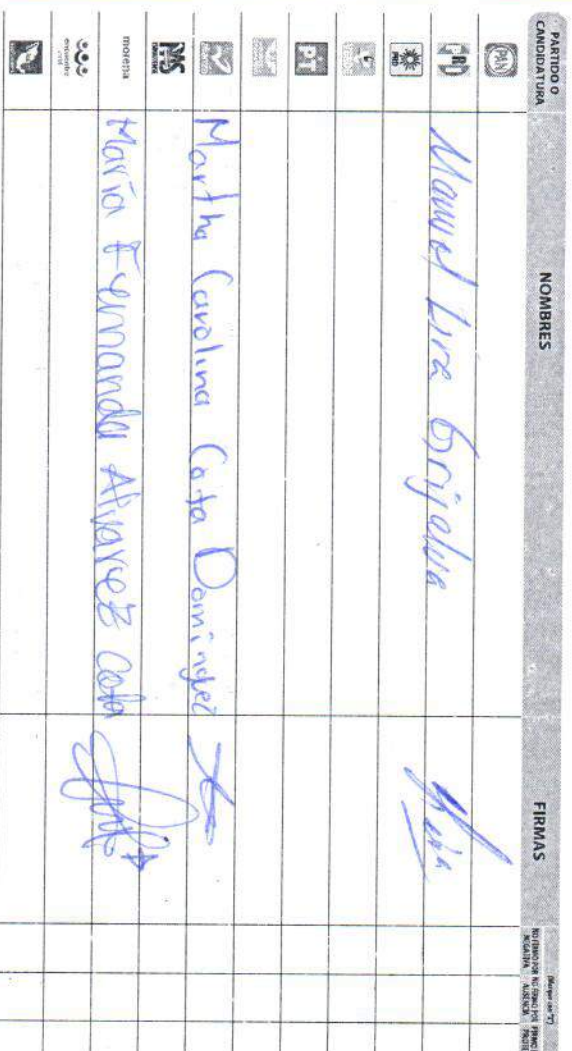 PARTIDO O
CANDIDATURA
NOMBRES
FIRMAS
(Marque con "X")
NO FIRMÓ POR
NEGATIVA
NO FIRMÓ POR
AUSENCIA
PAN
PRI
Manuel Lira Grijalva
PRD
PT
PAS
Martha Carolina Cota Dominguez
morena
María Fernanda Alvarez Cota
encuentro